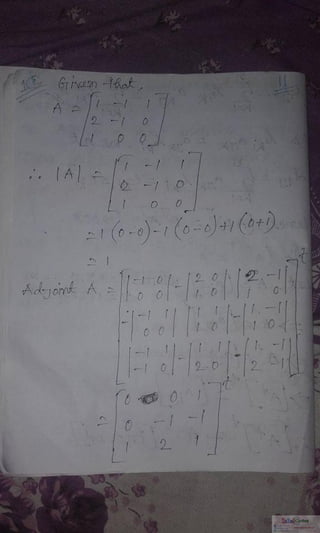 Given that, 11
A = [1 -1 1
2 -1 0
1 0 0]
∴ |A| = [1 -1 1
2 -1 0
1 0 0]
= 1 (0-0) -1 (0-0) +1 (0+1)
= 1
Adjoint A = [|-1 0| - |2 0| |2 -1|
|0 0| |1 0| |1 0|
-|-1 1| |1 1| -|1 -1|
|0 0| |1 0| |1 0|
|-1 1| -|1 1| |1 -1|
|-1 0| |2 0| |2 -1|]t
= [0 0 1
0 -1 -1
1 2 1]t